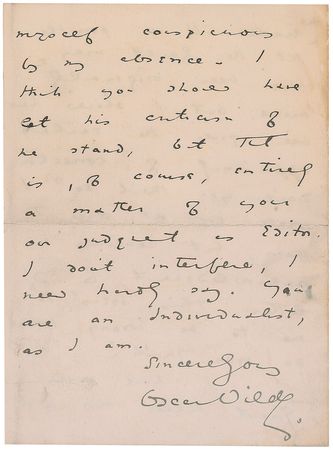 myself conspicuous
by my absence. I
think you should have
let his criticism of
me stand, but that
is, of course, entirely
a matter of your
own judgment as Editor.
I don't interfere, I
need hardly say. You
are an Individualist,
as I am.
Sincerely yours
Oscar Wilde